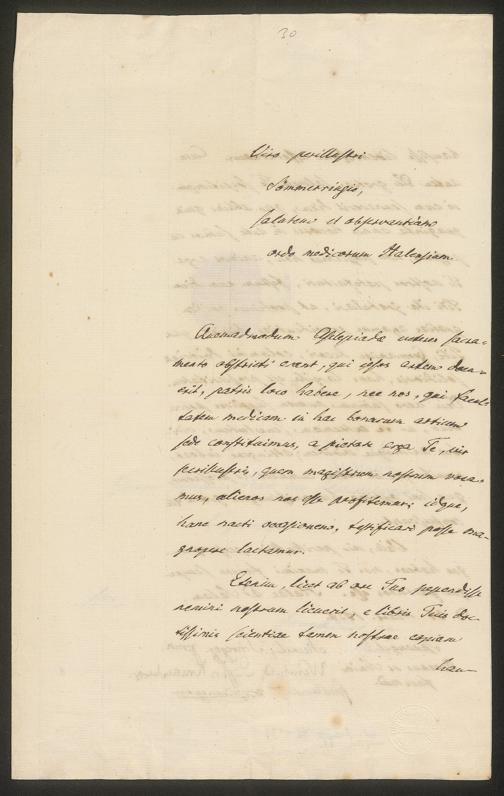 30
Viro perillustri
Sömmerringio,
salutem et observantiam
ordo medicorum Halensium
Quemadmodum Asclepiadae veteres sacra-
mento obstricti erant, qui ipsos artem docu-
erit, patris loco habere, nec nos, qui facul-
tatem medicam in hac bonarum artium
sede constituimus, a pietate erga Te, vir
perillustris, quem magistrum nostrum voca-
mus, alienos nos esse profitemur; idque,
hanc nacti occasionem, testificari posse ma-
gnopere laetamur.
Etenim, licet ab ore Tuo pependisse
nemini nostrum licuerit, e libris Tuis doc-
tissimis scientiae tamen nostrae copiam
hau-